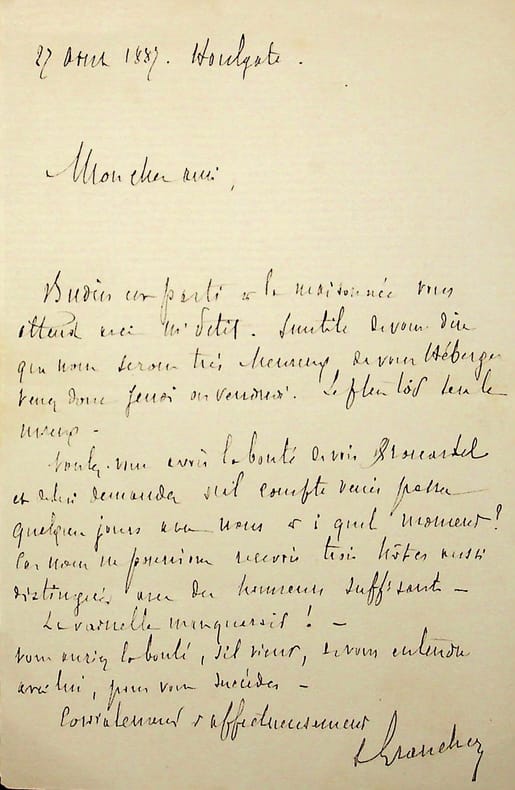 27 Aout 1887. Houlgate.
Mon cher ami,
est parti & la maisonnée vous
attend avec Mr Petit. Inutile de vous dire
que nous serons très heureux de vous héberger
Venez donc Jeudi ou vendredi. Le plus tôt sera le
mieux -
Voulez-vous avoir la bonté de voir Brouardel
et de lui demander s'il compte venir passer
quelques jours avec nous & à quel moment?
Car nous ne pourrions recevoir trois hôtes aussi
distingués avec des honneurs suffisants -
La vaisselle manquerait! -
vous auriez la bonté, s'il vient, de vous entendre
avec lui, pour vous succéder -
Cordialement & affectueusement
Grancher